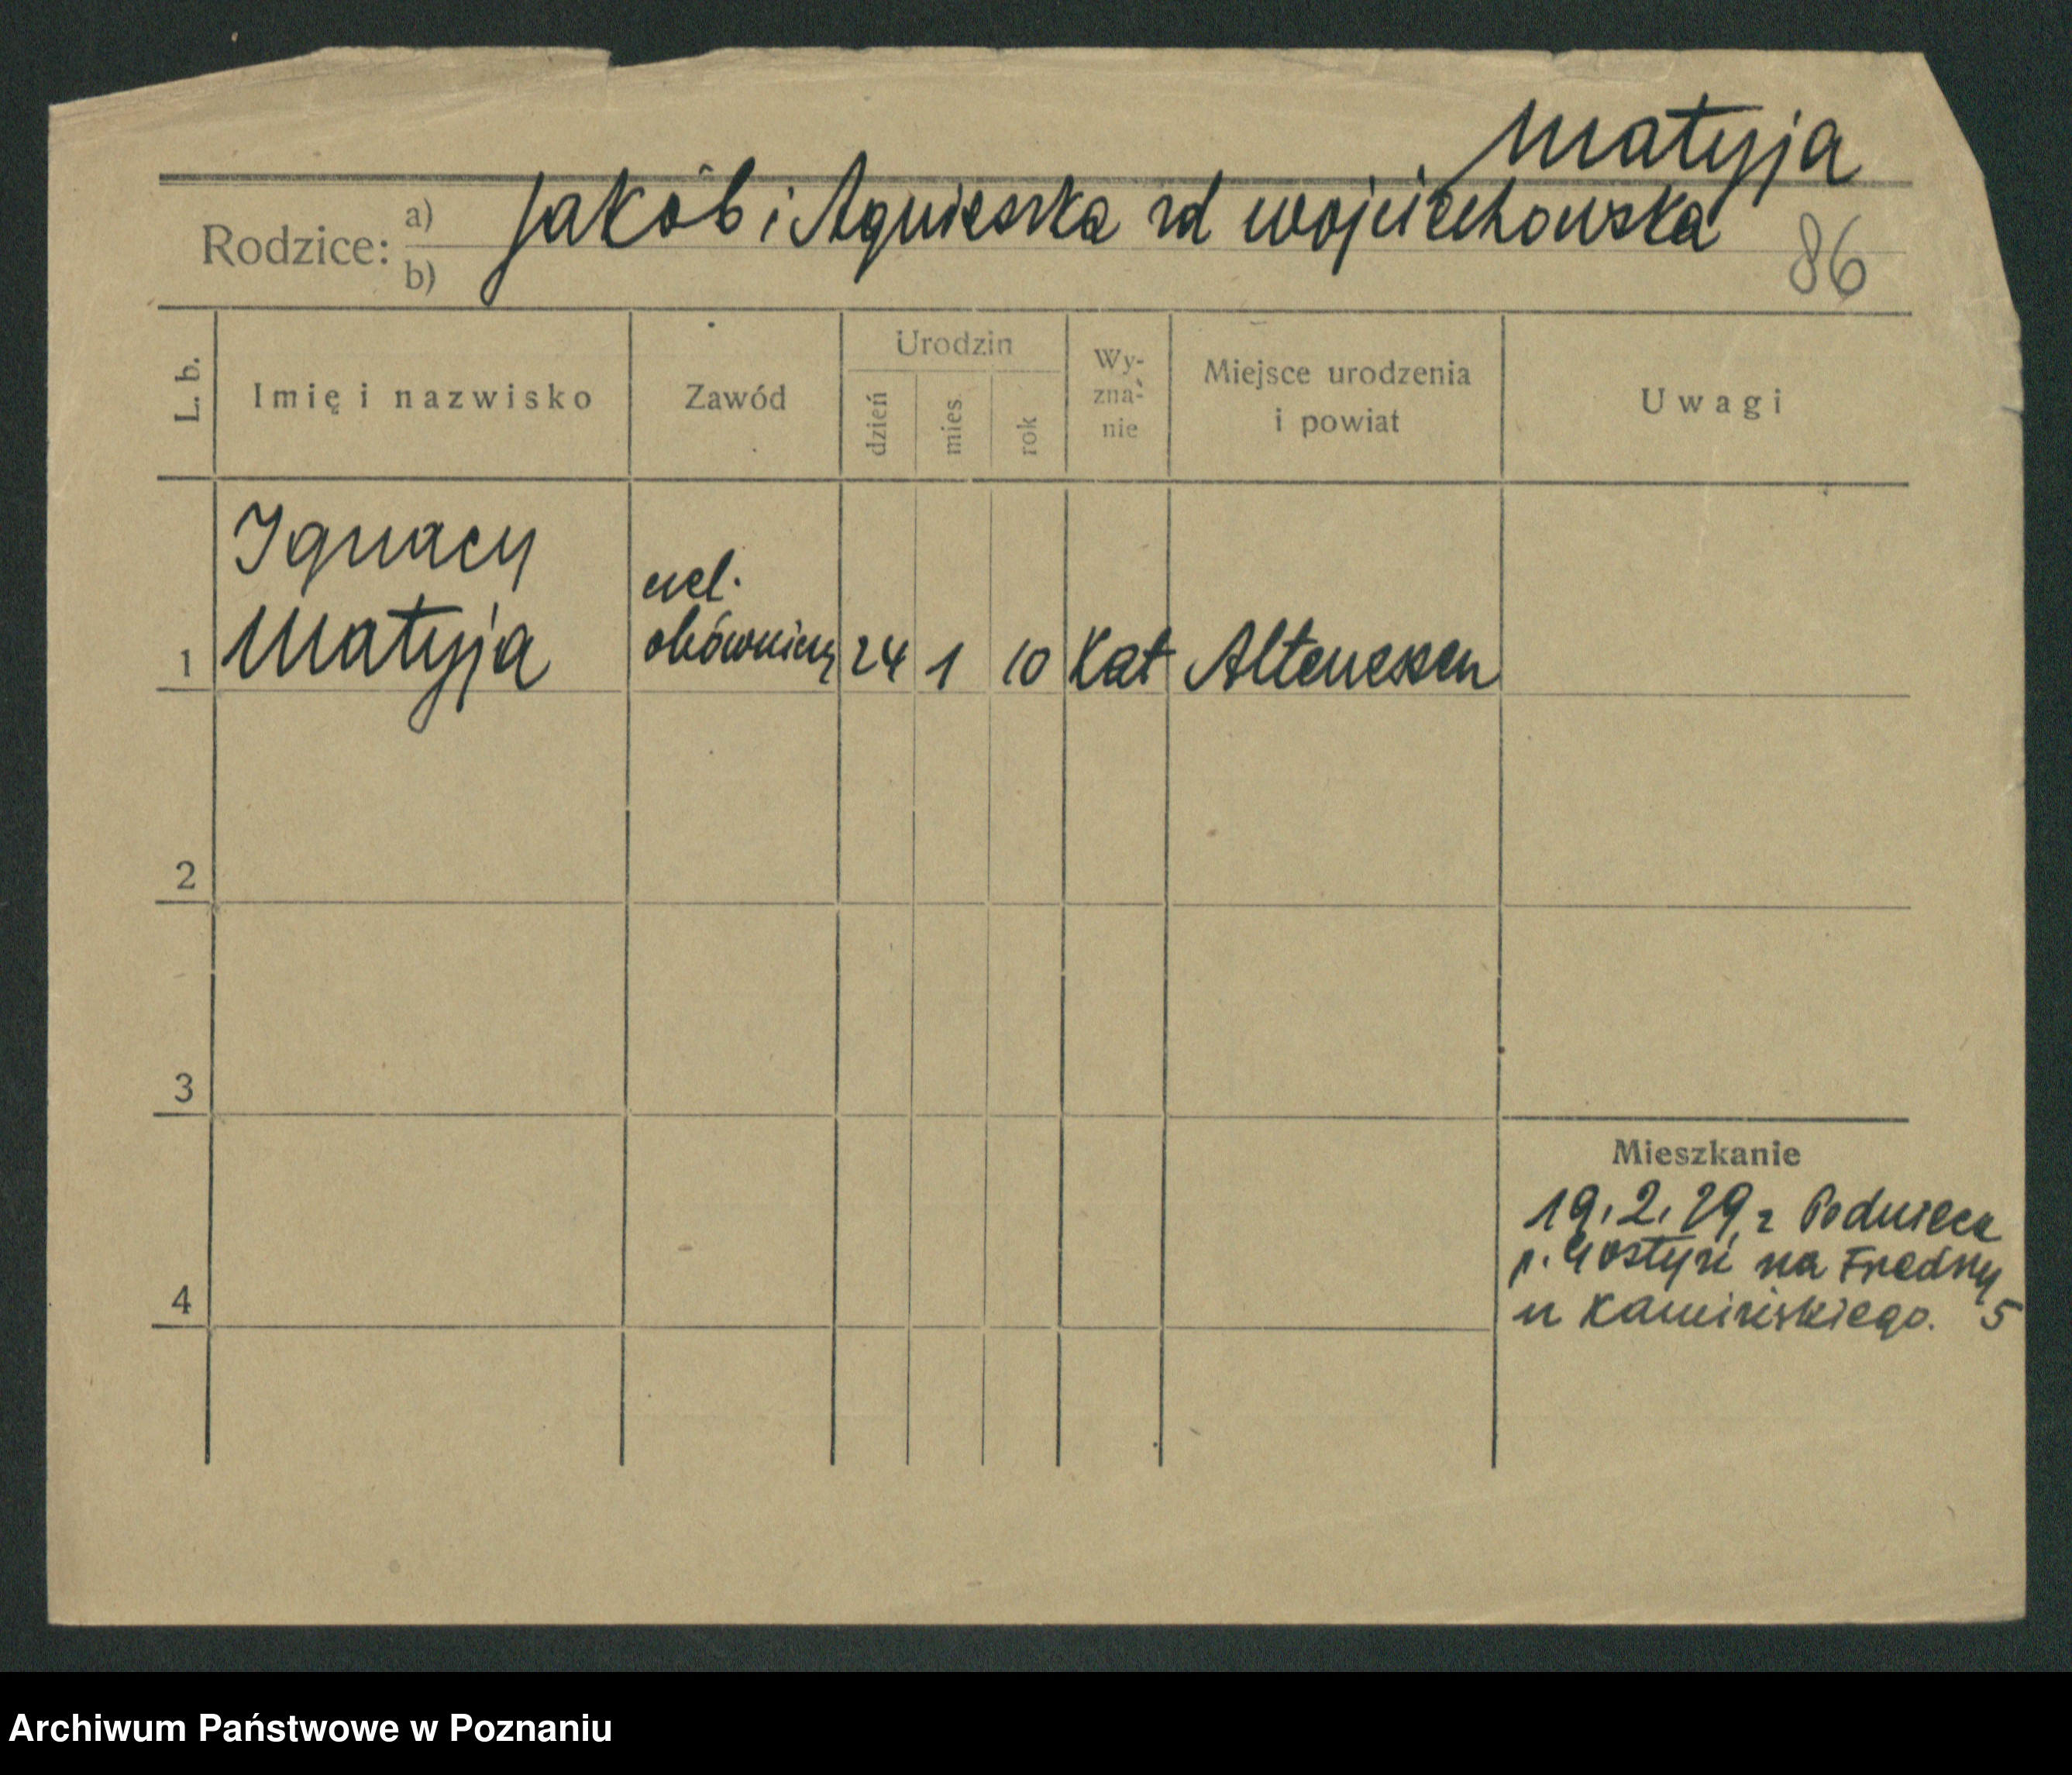 Matyja
Rodzice: a) Jakób i Agnieszka zd Wojciechowska
b)
86
L. b. Imię i nazwisko Zawód Urodzin dzień mies. rok Wy-zna-nie Miejsce urodzenia i powiat Uwagi
Ignacy
czel.
1 Matyja obówniczy 24 1 10 Kat Altenessen
2
3
Mieszkanie
19.2.29 z Podrzecza
p. Gostyń na Fredry
4 u Kamińskiego. 5
Archiwum Państwowe w Poznaniu